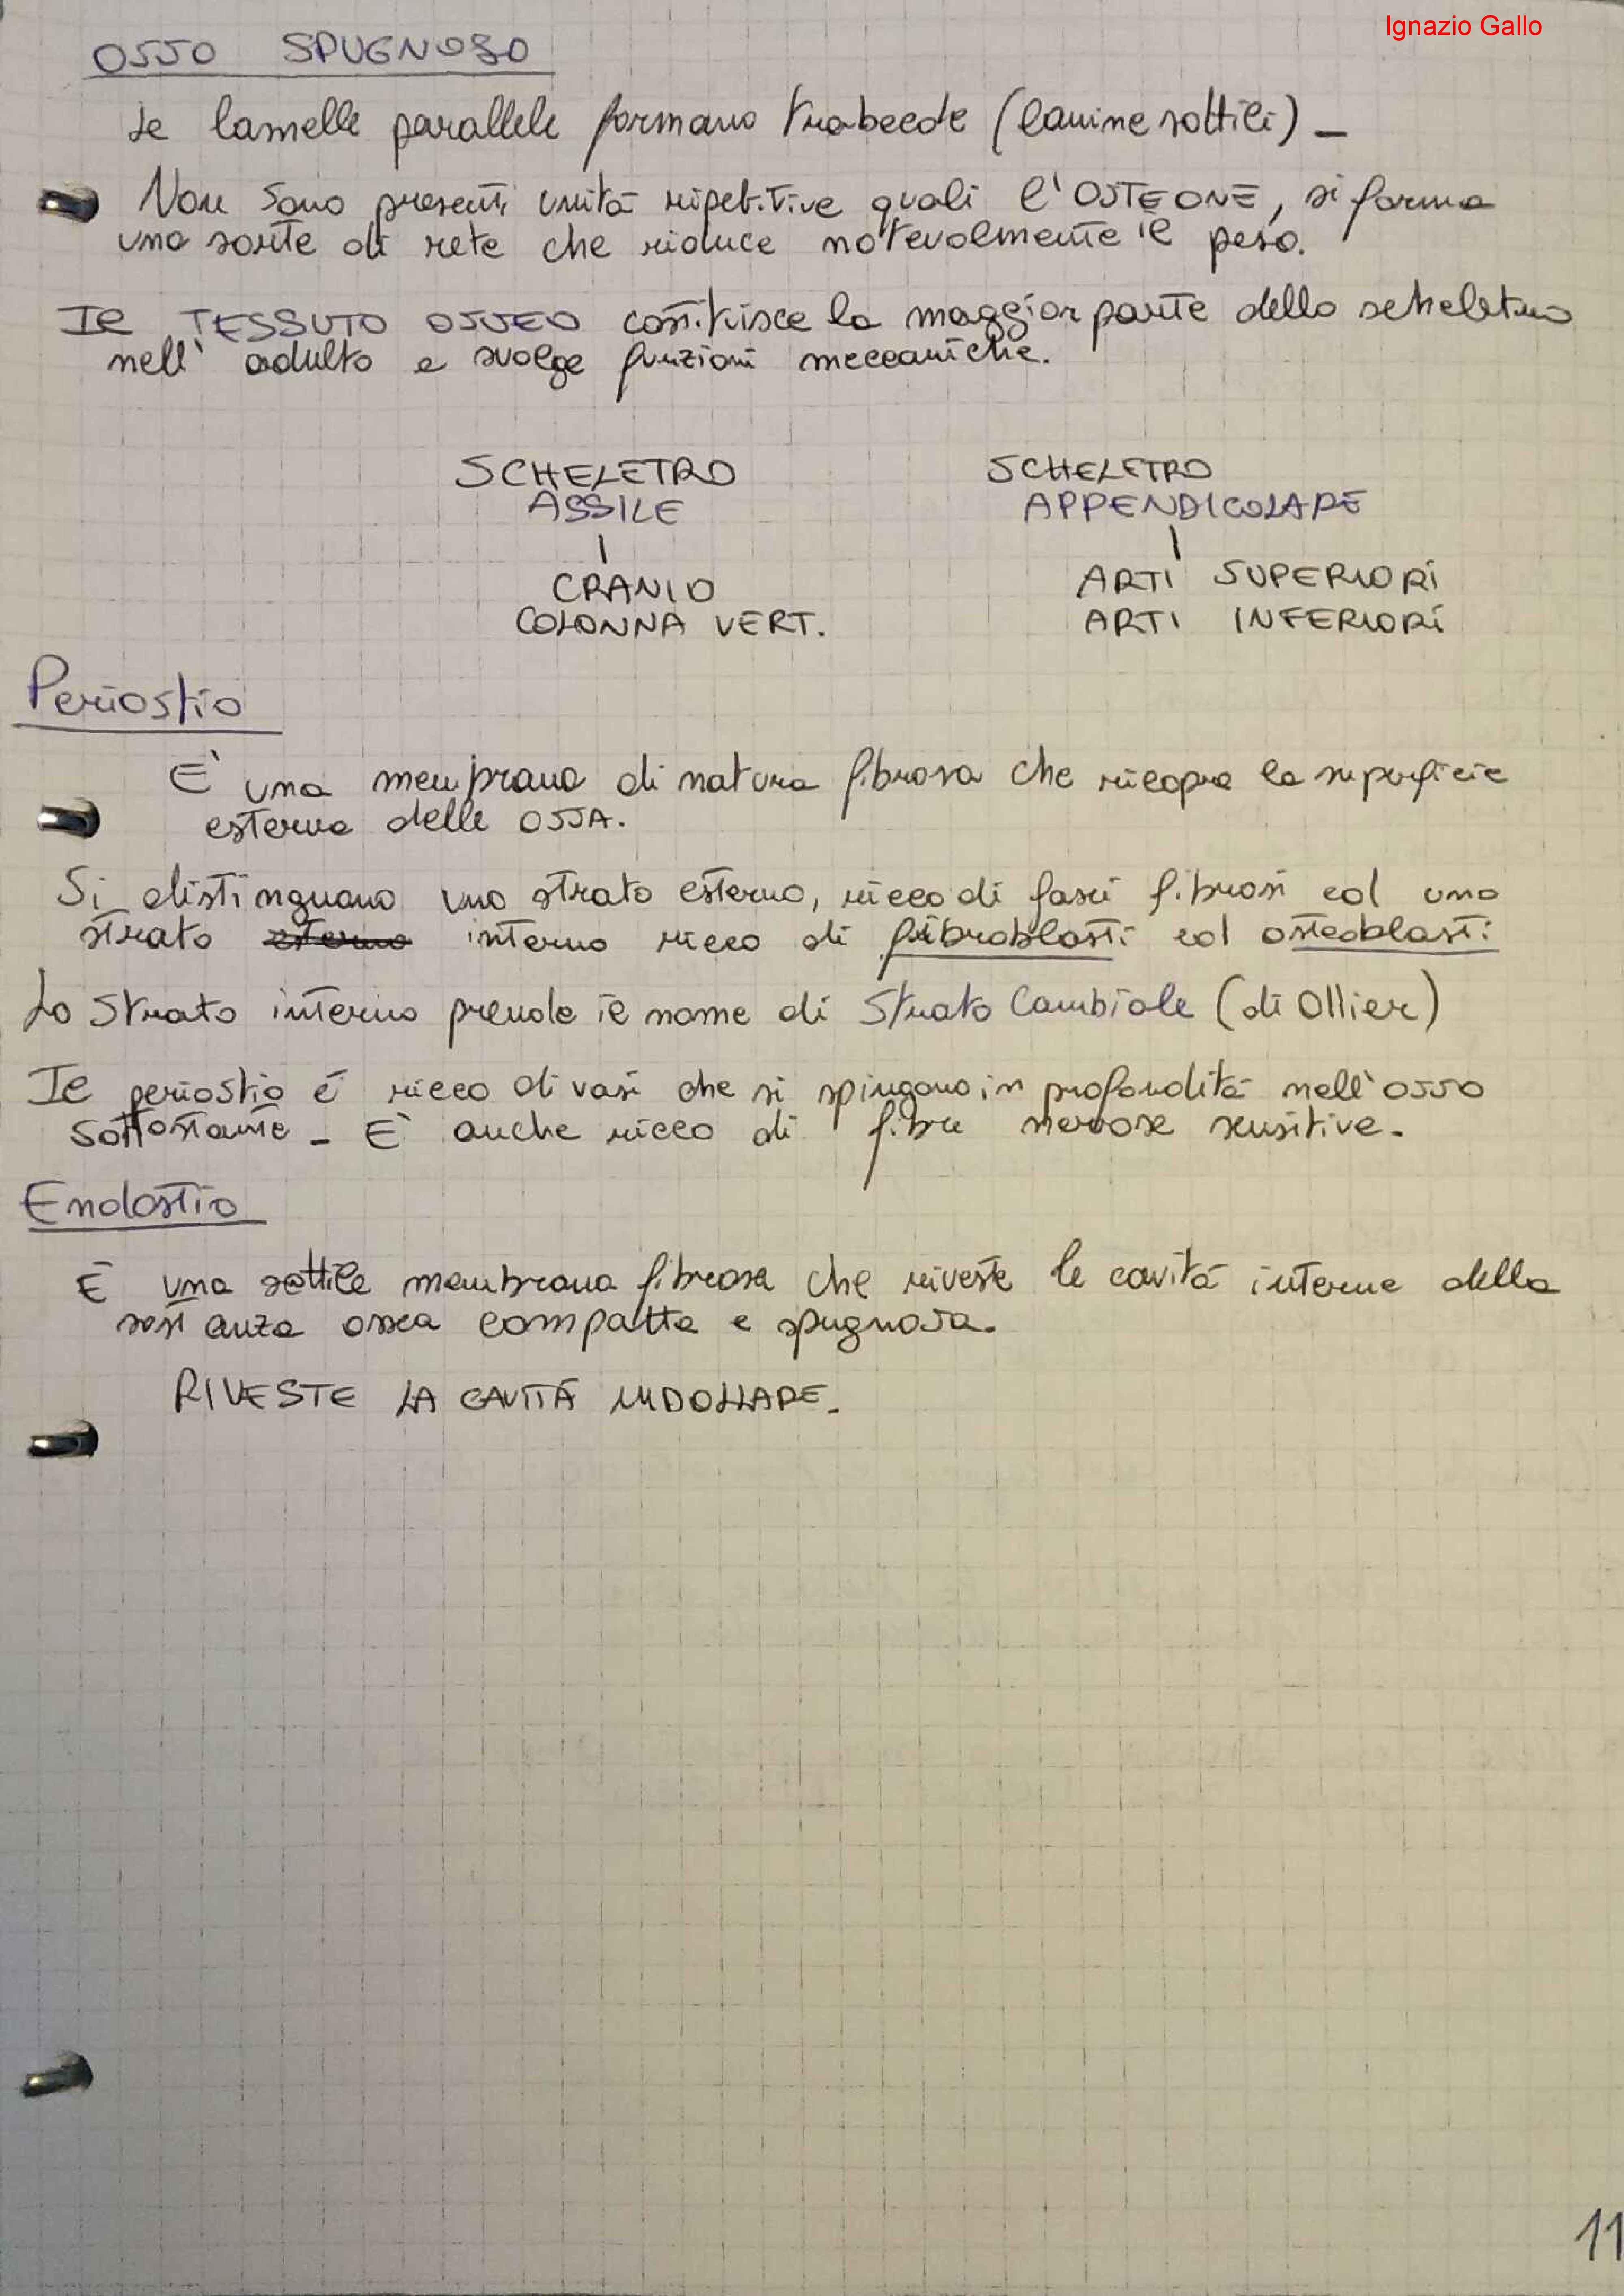 Ignazio Gallo
OSSO SPUGNOSO
Le lamelle parallele formano trabecole (lamine sottili) -
Non sono presenti unità ripetitive quali l'OSTEONE, si forma
una sorte di rete che riduce notevolmente il peso.
Il TESSUTO OSSEO costituisce la maggior parte dello scheletro
nell' adulto e svolge funzioni meccaniche.
SCHELETRO SCHELETRO
ASSILE APPENDICOLARE
CRANIO ARTI SUPERIORI
COLONNA VERT. ARTI INFERIORI
Periostio
E' una membrana di natura fibrosa che ricopre la superficie
esterna delle OSSA.
Si distinguono uno strato esterno, ricco di fasci fibrosi ed uno
strato esterno interno ricco di fibroblasti ed osteoblasti
Lo Strato interno prende il nome di Strato Cambiale (di Ollier)
Il periostio é ricco di vasi che si spingono in profondità nell'osso
sottostante - E' anche ricco di fibre nervose sensitive.
Endostio
E una sottile membrana fibrosa che riveste le cavità interne della
sostanza ossea compatta e spugnosa.
RIVESTE LA CAVITÁ MIDOLLARE.
11